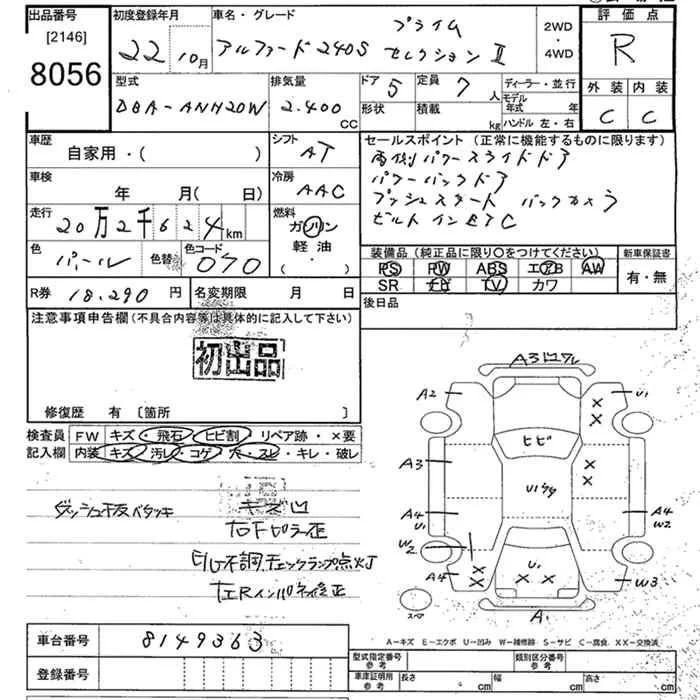 出品番号
[2146]
8056
初度登録年月
22 10月
車名・グレード
アルファード240S プライム セレクションⅡ
2WD
・
4WD
評価点
R
外装 内装
C C
型式
DBA-ANH20W
排気量
2.400 CC
ドア 5
定員 7 人
形状
積載 kg
ディーラー・並行
モデル年式 年
ハンドル 左・右
車歴
自家用・( )
シフト
AT
車検
年 月(日)
冷房
AAC
走行
20万2千624km
燃料
ガソリン
軽油・
色
パール
色替
色コード
070
R券 18.290 円
名変期限 月 日
セールスポイント(正常に機能するものに限ります)
両側パワースライドドア
パワーバックドア
プッシュスタート バックカメラ
ビルトインETC
装備品(純正品に限り○をつけてください)
PS PW ABS エアB AW
SR ナビ TV カワ
新車保証書
有・無
後日品
注意事項申告欄(不具合内容等は具体的に記入して下さい)
初出品
修復歴 有〔箇所 〕
検査員記入欄
FW キズ・飛石・ヒビ割・リペア跡・×要
内装 キズ・汚レ・コゲ・穴・スレ・キレ・破レ
ダッシュ板ベタツキ
キズ凹
右Fピラー歪
チェックランプ点灯
左Rインパネ修正
A3
A2
U1
ヒビ
A3
A4
U1
W2
A4
A4
W2
W3
U1
A1
スペア
××
××
××
××
A-キズ E-エクボ U-凹み W-補修跡 S-サビ C-腐食 XX-交換済
車台番号
8149363
登録番号
型式指定番号
参考
類別区分番号
参考
車庫証明用
参考
長さ cm
幅 cm
高さ cm